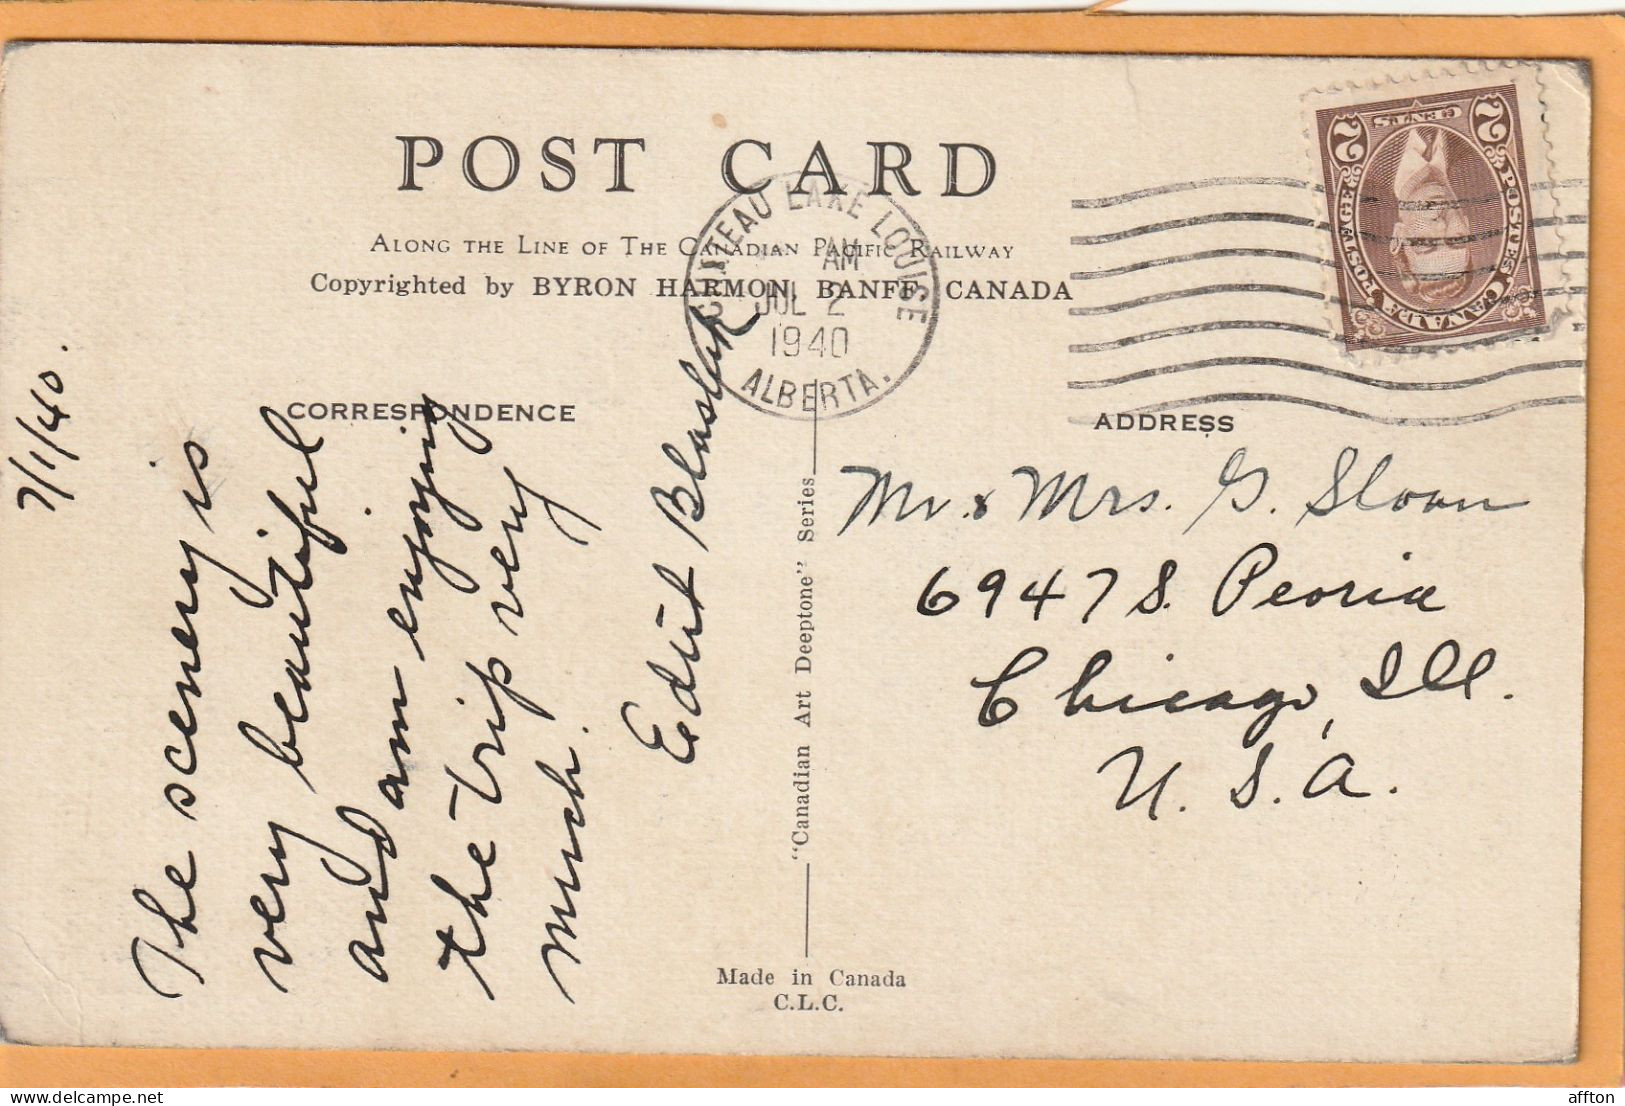 POST CARD
ALONG THE LINE OF THE CANADIAN PACIFIC RAILWAY
Copyrighted by BYRON HARMON, BANFF, CANADA
CHATEAU LAKE LOUISE
AM
JUL 2
1940
ALBERTA.
2 CENTS 2
POSTAGE CANADA POSTES
CORRESPONDENCE
ADDRESS
7/1/40.
The scenery is
very beautiful
and am enjoying
the trip very
much.
Edit
Mr. & Mrs. G. Sloan
6947 S. Peoria
Chicago, Ill.
U. S. A.
"Canadian Art Deeptone" Series
Made in Canada
C.L.C.
affton